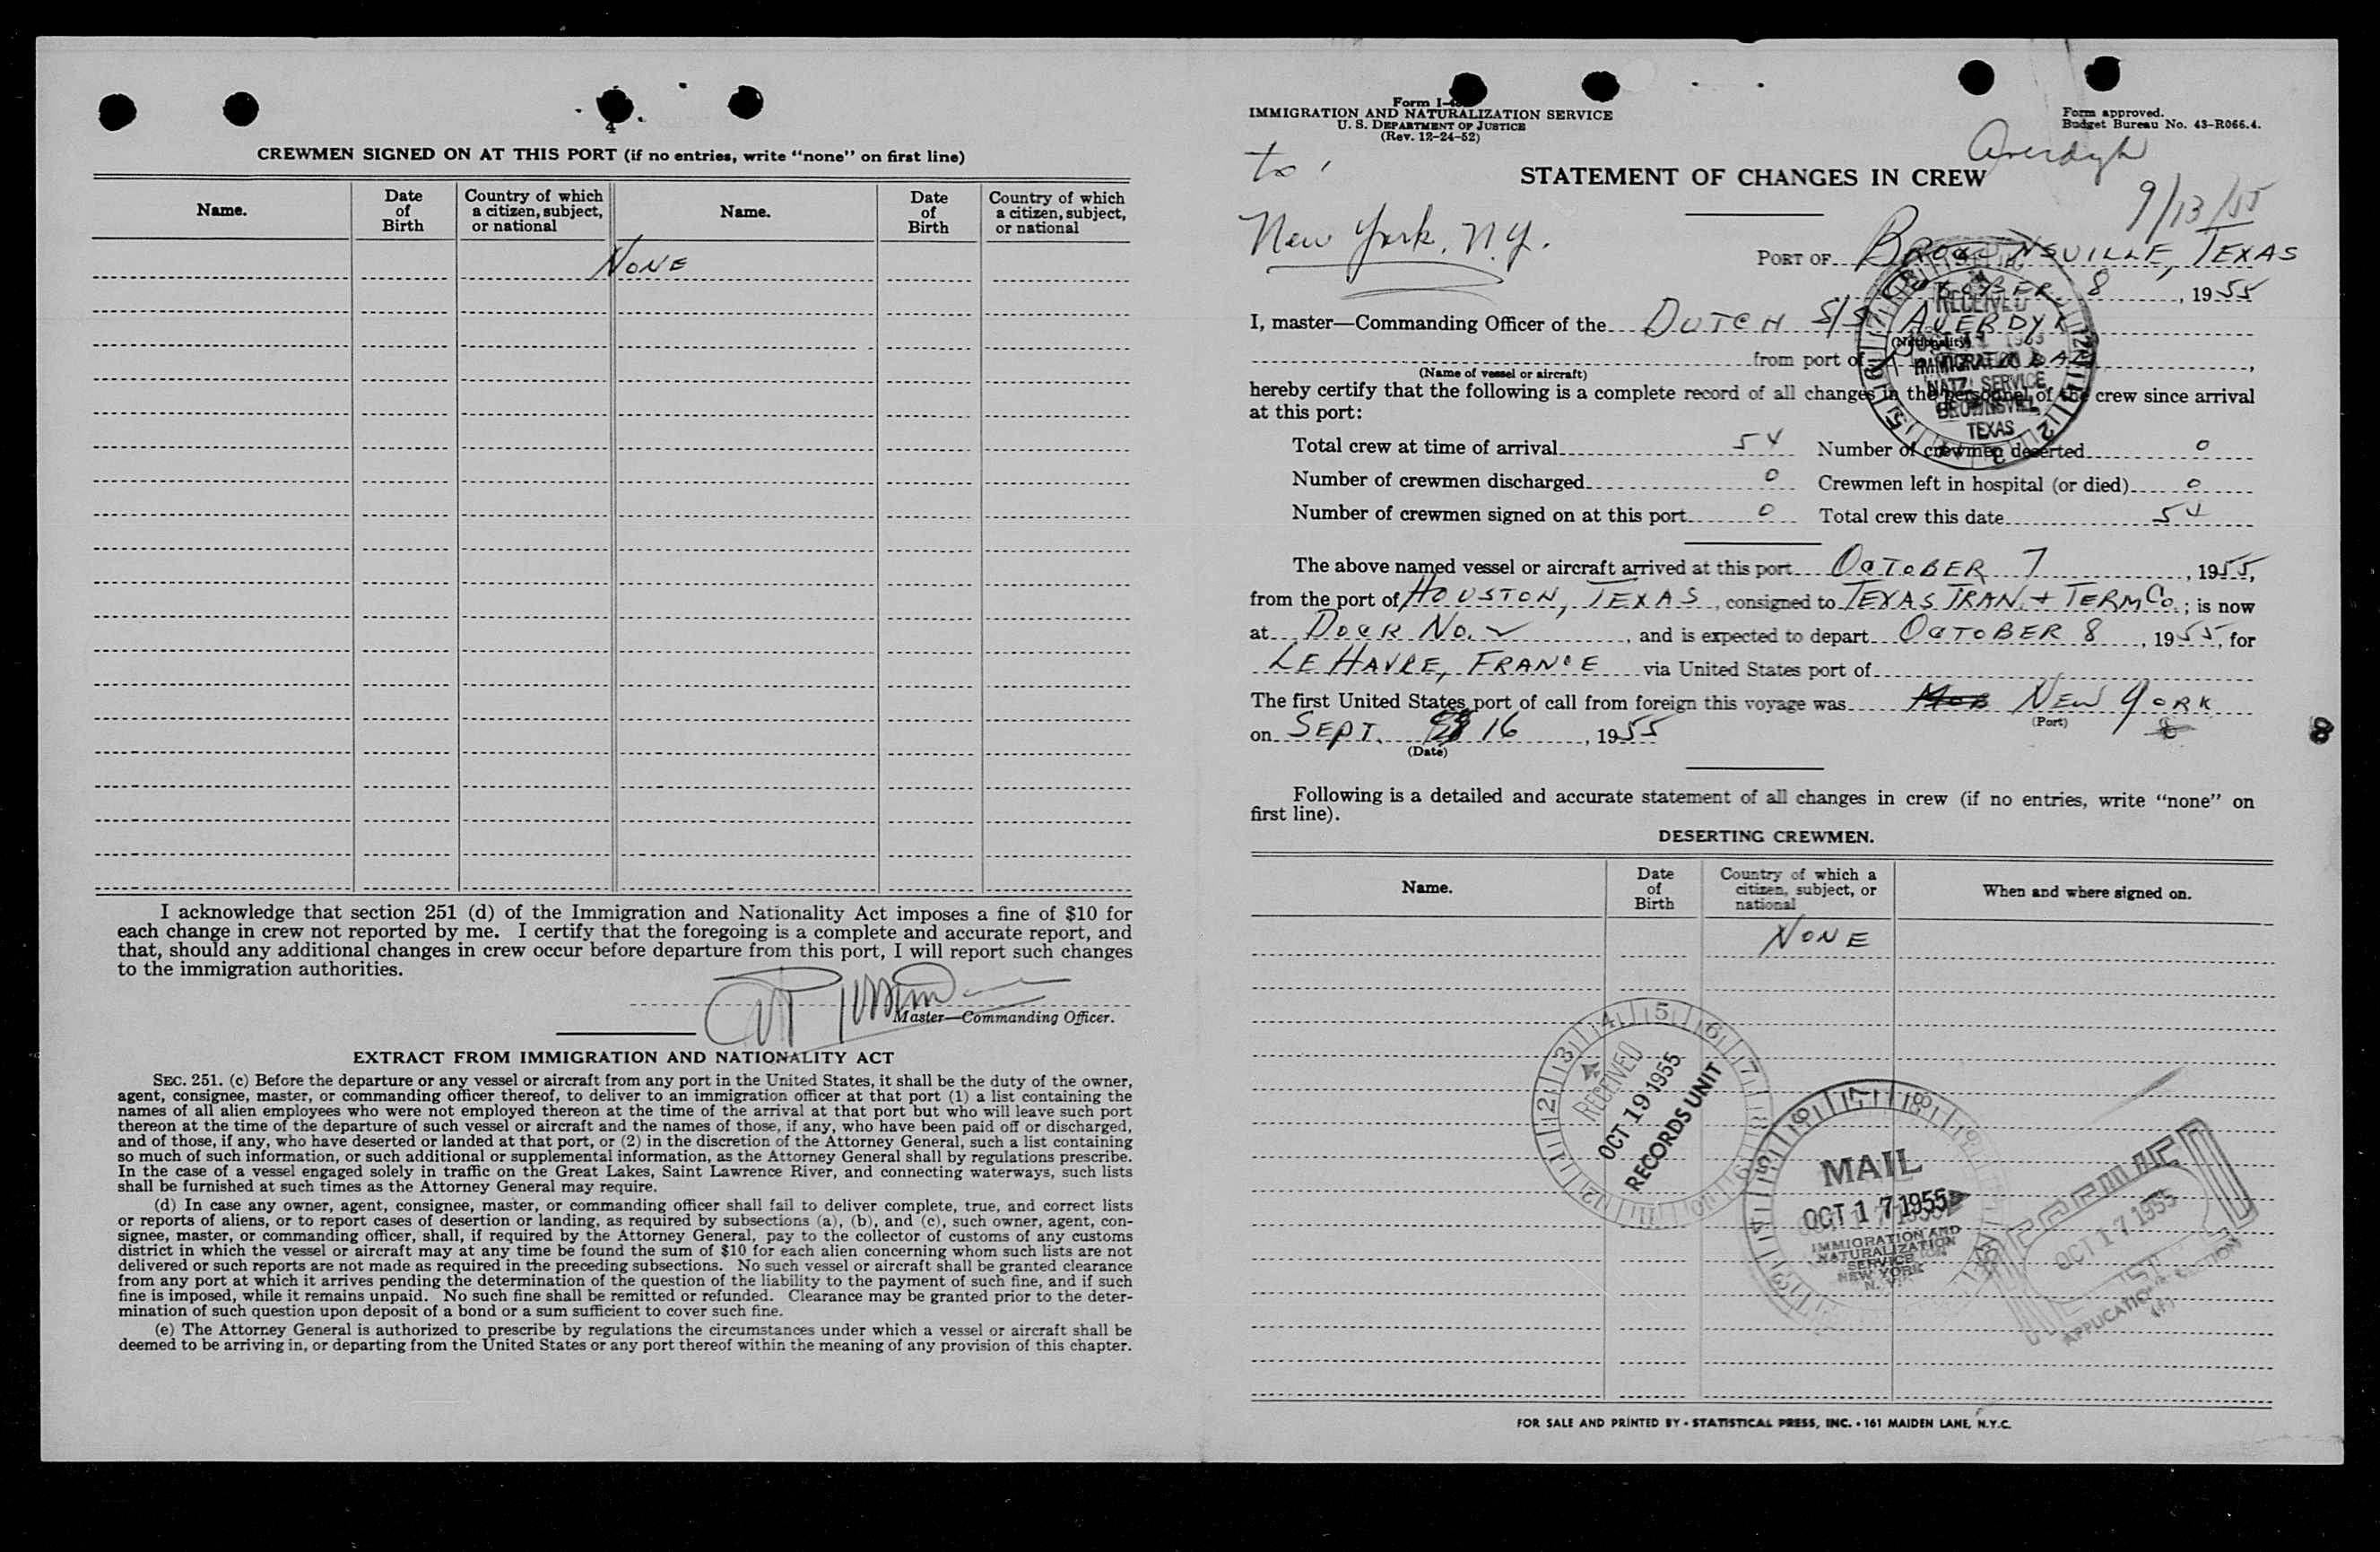 4
CREWMEN SIGNED ON AT THIS PORT (if no entries, write "none" on first line)
Name. Date of Birth Country of which a citizen, subject, or national Name. Date of Birth Country of which a citizen, subject, or national
NONE
I acknowledge that section 251 (d) of the Immigration and Nationality Act imposes a fine of $10 for
each change in crew not reported by me. I certify that the foregoing is a complete and accurate report, and
that, should any additional changes in crew occur before departure from this port, I will report such changes
to the immigration authorities.
Master—Commanding Officer.
EXTRACT FROM IMMIGRATION AND NATIONALITY ACT
SEC. 251. (c) Before the departure or any vessel or aircraft from any port in the United States, it shall be the duty of the owner,
agent, consignee, master, or commanding officer thereof, to deliver to an immigration officer at that port (1) a list containing the
names of all alien employees who were not employed thereon at the time of the arrival at that port but who will leave such port
thereon at the time of the departure of such vessel or aircraft and the names of those, if any, who have been paid off or discharged,
and of those, if any, who have deserted or landed at that port, or (2) in the discretion of the Attorney General, such a list containing
so much of such information, or such additional or supplemental information, as the Attorney General shall by regulations prescribe.
In the case of a vessel engaged solely in traffic on the Great Lakes, Saint Lawrence River, and connecting waterways, such lists
shall be furnished at such times as the Attorney General may require.
(d) In case any owner, agent, consignee, master, or commanding officer shall fail to deliver complete, true, and correct lists
or reports of aliens, or to report cases of desertion or landing, as required by subsections (a), (b), and (c), such owner, agent, con-
signee, master, or commanding officer, shall, if required by the Attorney General, pay to the collector of customs of any customs
district in which the vessel or aircraft may at any time be found the sum of $10 for each alien concerning whom such lists are not
delivered or such reports are not made as required in the preceding subsections. No such vessel or aircraft shall be granted clearance
from any port at which it arrives pending the determination of the question of the liability to the payment of such fine, and if such
fine is imposed, while it remains unpaid. No such fine shall be remitted or refunded. Clearance may be granted prior to the deter-
mination of such question upon deposit of a bond or a sum sufficient to cover such fine.
(e) The Attorney General is authorized to prescribe by regulations the circumstances under which a vessel or aircraft shall be
deemed to be arriving in, or departing from the United States or any port thereof within the meaning of any provision of this chapter.
Form
IMMIGRATION AND NATURALIZATION SERVICE
U. S. DEPARTMENT OF JUSTICE
(Rev. 12-24-52)
Form approved.
Budget Bureau No. 43-R066.4.
Averdyk
9/13/55
to
New York, N.Y.
STATEMENT OF CHANGES IN CREW
PORT OF BROWNSVILLE, TEXAS
OCTOBER 8, 1955
I, master—Commanding Officer of the DUTCH S/S AVERDYK
(Nationality)
from port of
(Name of vessel or aircraft)
hereby certify that the following is a complete record of all changes in the personnel of the crew since arrival
at this port:
RECEIVED
IMMIGRATION
NATZ. SERVICE
TEXAS
Total crew at time of arrival 54 Number of crewmen deserted 0
Number of crewmen discharged 0 Crewmen left in hospital (or died) 0
Number of crewmen signed on at this port 0 Total crew this date 54
The above named vessel or aircraft arrived at this port OCTOBER 7, 1955,
from the port of HOUSTON, TEXAS, consigned to TEXAS TRAN. + TERM Co.; is now
at DOCK No. 2, and is expected to depart OCTOBER 8, 1955, for
LE HAVRE, FRANCE via United States port of
The first United States port of call from foreign this voyage was NEW YORK
(Port)
on SEPT. 16, 1955
(Date)
8
Following is a detailed and accurate statement of all changes in crew (if no entries, write "none" on
first line).
DESERTING CREWMEN.
Name. Date of Birth Country of which a citizen, subject, or national When and where signed on.
NONE
RECEIVED
OCT 19 1955
RECORDS UNIT
MAIL
OCT 17 1955
IMMIGRATION AND
NATURALIZATION
SERVICE
NEW YORK
N. Y.
OCT 17 1955
FOR SALE AND PRINTED BY - STATISTICAL PRESS, INC. • 161 MAIDEN LANE, N.Y.C.